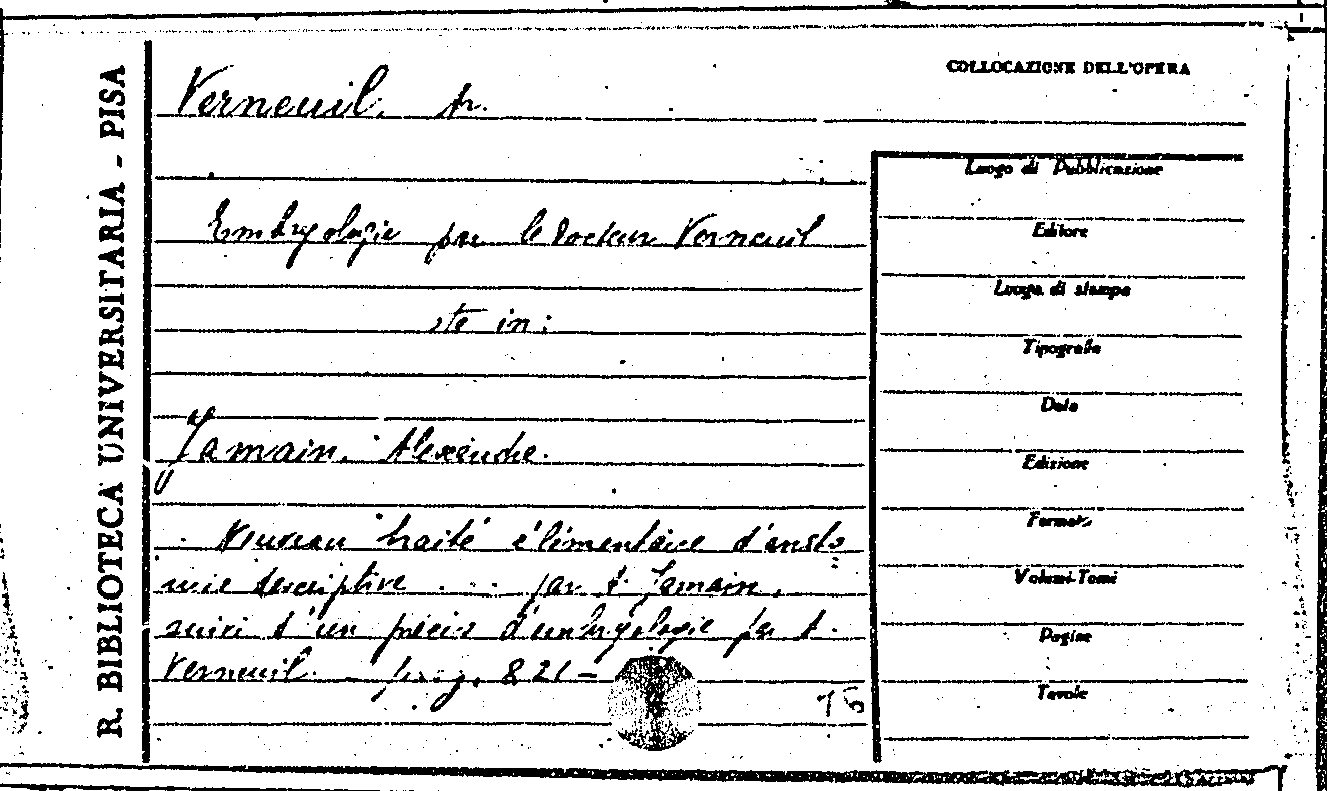 R. BIBLIOTECA UNIVERSITARIA - PISA
COLLOCAZIONE DELL'OPERA
Verneuil, A.
Embryologie par le Docteur Verneuil
ste in:
Jamain, Alexandre.
Nouveau traité élémentaire d'anato
mie descriptive . . . par A. Jamain,
suivi d'un précis d'embryologie par A.
Verneuil. - pag. 821-
75
Luogo di Pubblicazione
Editore
Luogo di stampa
Tipografia
Data
Edizione
Formato
Volumi-Tomi
Pagine
Tavole